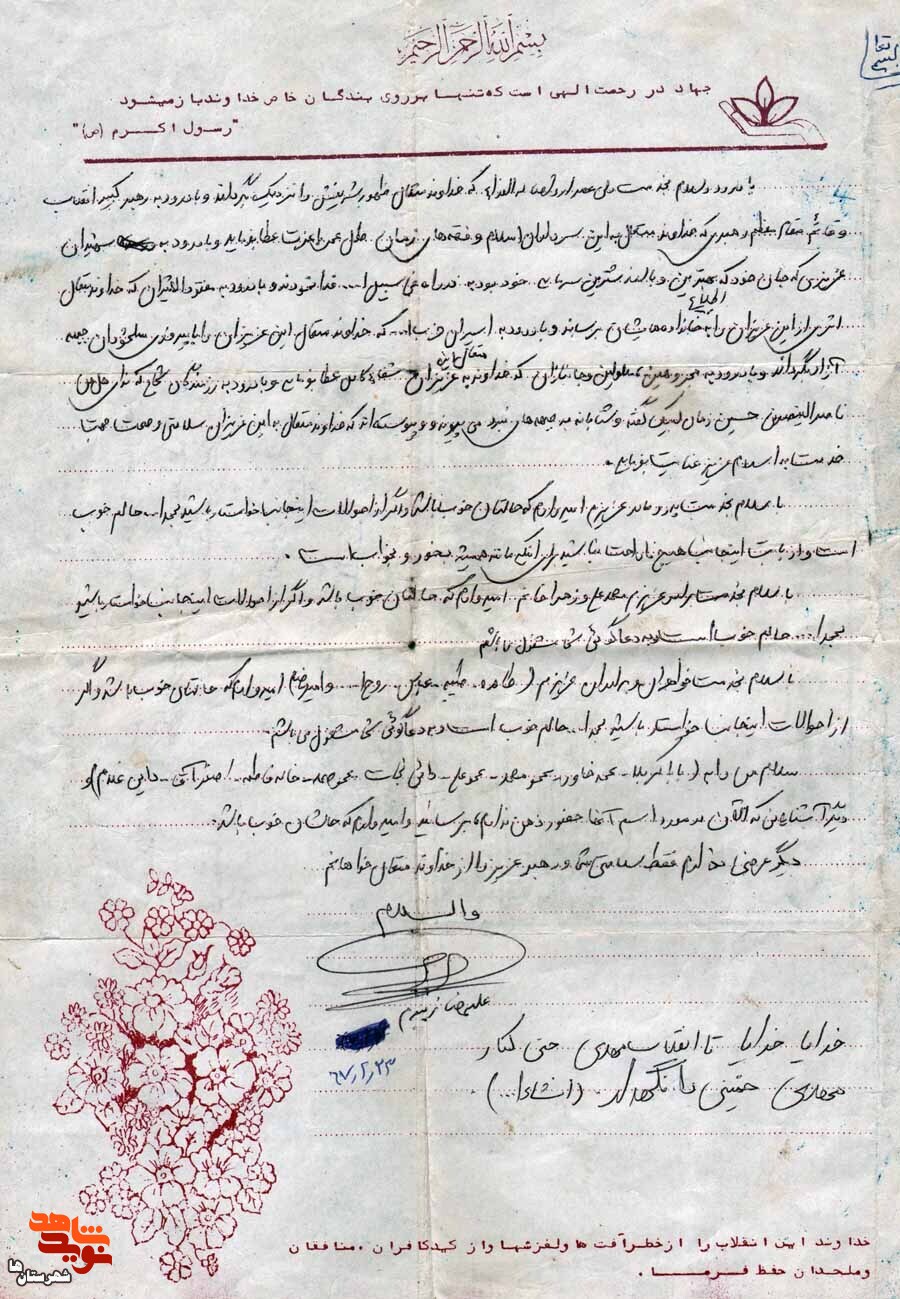 بسم الله الرحمن الرحیم
بسمه تعالی
جهاد دری از رحمت الهی است که تنها بر روی بندگان خاص خداوند باز میشود
"رسول اکرم (ص)"
با درود و سلام بخدمت ولی عصر ارواحنا له الفداء که خداوند متعال ظهور شریفش را نزدیک بگرداند و با درود به رهبر کبیر انقلاب
و قائم مقام معظم رهبری که خداوند متعال به این سرداران اسلام و فقه‌های زمان طول عمر با عزت عطا بفرماید و با درود به شهیدان
عزیزی که جان خود که بهترین و باارزشترین سرمایه خود بود به در راه فی سبیل ا... فدا نمودند و با درود به مفقودالاثران که خداوند متعال
اثری از این عزیزان را به اطلاع خانواده‌هایشان برساند و با درود به اسیران که خداوند متعال این عزیزان را با پیروزی سلحشوران جبهه
آزاد بگرداند و با درود به مجروحین معلولین و جانبازان که خداوند متعال به این عزیزان شفاء کامل عطا بفرماید و با درود به رزمندگان که ندای هل من
ناصر ینصرنی حسین زمان را لبیک گفته و شتابانه به جبهه‌های نبرد می‌پیوندند و پیوسته‌اند که خداوند متعال به این عزیزان سلامتی و صحت جهت
خدمت به اسلام عزیز عنایت بفرماید.
با سلام بخدمت پدر و مادر عزیزم امیدوارم که حالتان خوب باشد و اگر از احوالات اینجانب خواستار باشید بحمدا... حالم خوب
است و از بابت اینجانب هیچ ناراحت نباشید برای اینکه مانند همیشه بخور و بخواب است.
با سلام بخدمت برادر عزیزم محمد علی و زهرا خانم. امیدوارم که حالتان خوب باشد و اگر از احوالات اینجانب خواستار باشید
بحمدا... حالم خوب است و به دعاگوئی شما مشغول می‌باشم
با سلام بخدمت خواهران و برادران عزیزم (طاهره. طیبه. عباس. روح ا... و امیررضا) امیدوارم که حالتان خوب باشد و اگر
از احوالات اینجانب خواستار باشید بحمدا... حالم خوب است و به دعاگوئی شما مشغول می‌باشم.
سلام من را به (بابا کربلا - عمه خاور - عمو محمد - عمو علی - دائی نجات - عمو صمد - خاله فاطمه - اصغر آقا - دایی غلام) و
دیگر آشنایانی که الآن در مورد اسم آنها حضور ذهن ندارم، برسانید و امیدوارم که حالشان خوب باشد.
دیگر عرضی ندارم فقط سلامتی شما و رهبر عزیز را از خداوند متعال خواهانم
والسلام
علیرضا
۶۷٫۲٫۲۳
خدایا خدایا تا انقلاب مهدی حتی کنار
مهدی خمینی را نگهدار (انشاءا...)
خداوند این انقلاب را از خطر آفت‌ها و لغزشها و از کید کافران، منافقان
و ملحدان حفظ فرما.
نوید شاهد
شهرستان‌ها